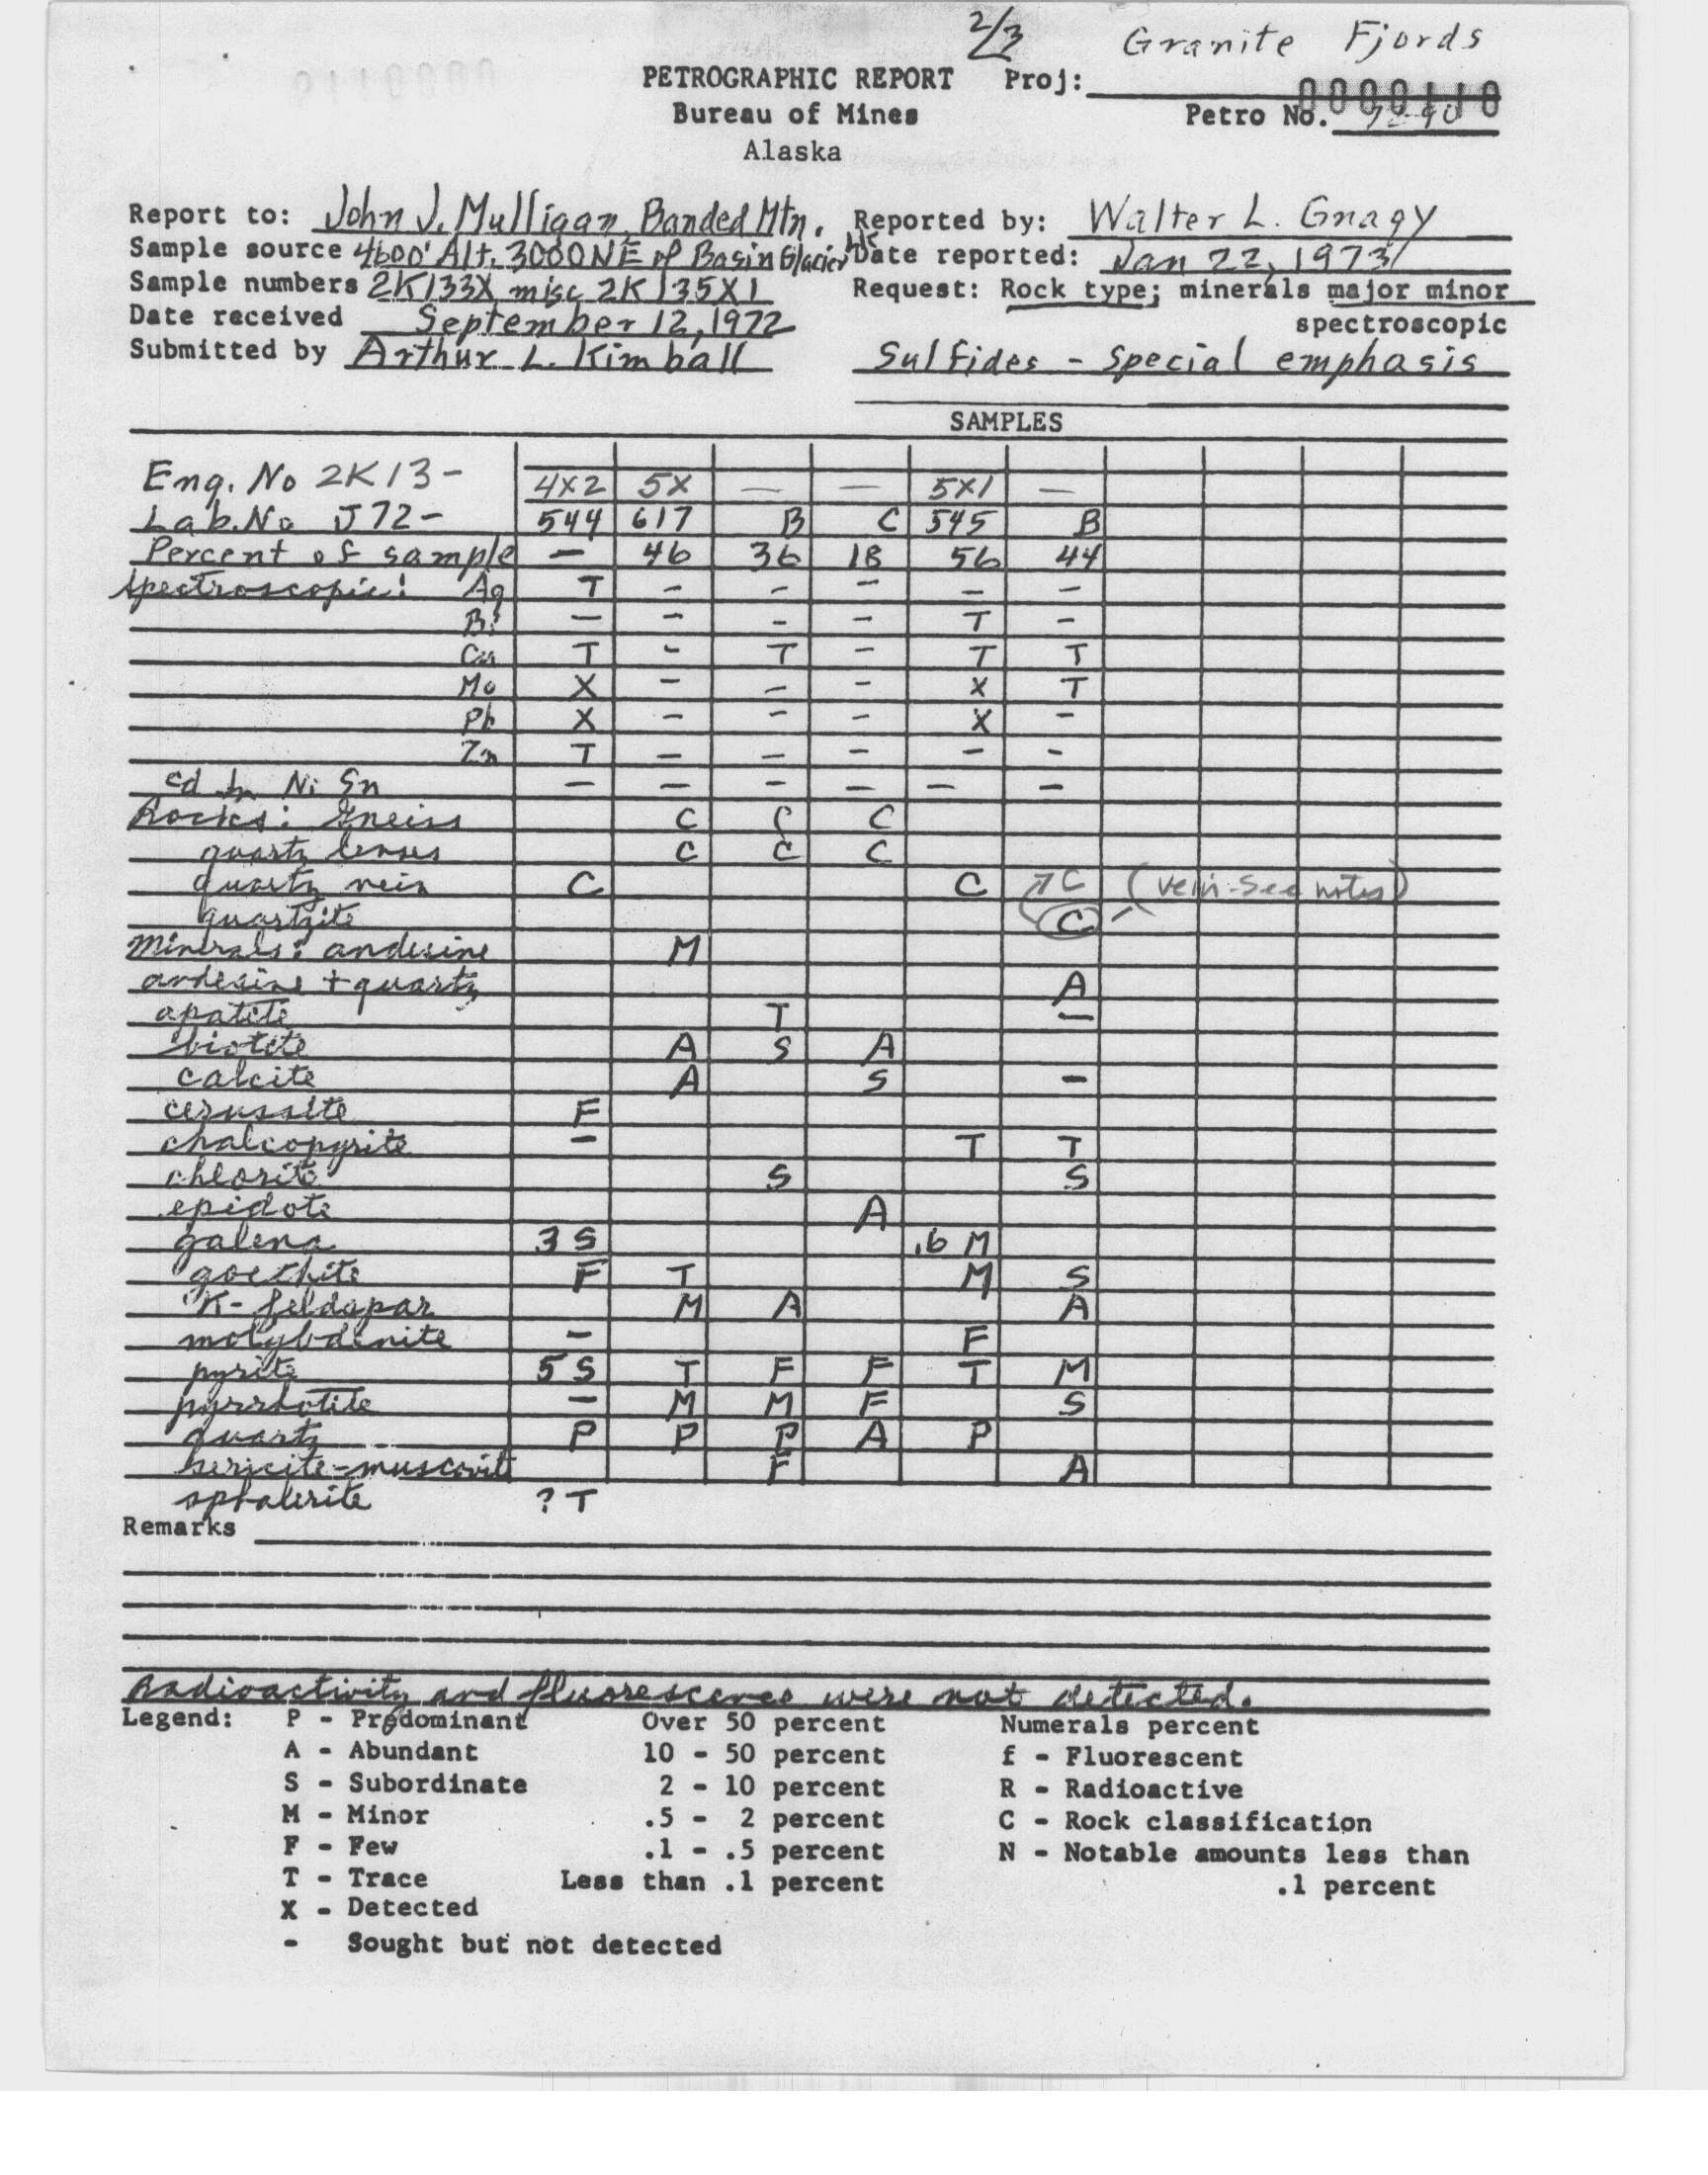 2/3 Granite Fjords
PETROGRAPHIC REPORT Proj:
0000110
Bureau of Mines Petro No.
Alaska
Report to: John J. Mulligan, Banded Mtn. Reported by: Walter L. Gnagy
Sample source 4600' Alt. 3000 NE of Basin Glacier Date reported: Jan 22, 1973
Sample numbers 2K133X misc 2K135X1 Request: Rock type; minerals major minor
Date received September 12, 1972 spectroscopic
Submitted by Arthur L. Kimball Sulfides - Special emphasis
SAMPLES
Eng. No 2K13- 4X2 5X — — 5X1 —
Lab. No J72- 544 617 B C 545 B
Percent of sample — 46 36 18 56 44
Spectroscopic: Ag T - - - - -
Bi - - - - T -
Cu T - T - T T
Mo X - - - X T
Pb X - - - X -
Zn T - - - - -
Cd In Ni Sn - - - - - -
Rocks: Gneiss C C C
quartz lenses C C C
quartz vein C C C (vein-See notes)
quartzite C
Minerals: andesine M
andesine + quartz A
apatite T -
biotite A S A
calcite A S -
cerussite F
chalcopyrite - T T
chlorite S S
epidote A
galena 3 S .6 M
goethite F T M S
K-feldspar M A A
molybdenite - F
pyrite 5 S T F F T M
pyrrhotite - M M F S
quartz P P P A P
sericite-muscovite F A
sphalerite ? T
Remarks
Radioactivity and fluorescence were not detected.
Legend: P - Predominant Over 50 percent Numerals percent
A - Abundant 10 - 50 percent f - Fluorescent
S - Subordinate 2 - 10 percent R - Radioactive
M - Minor .5 - 2 percent C - Rock classification
F - Few .1 - .5 percent N - Notable amounts less than
T - Trace Less than .1 percent .1 percent
X - Detected
- Sought but not detected